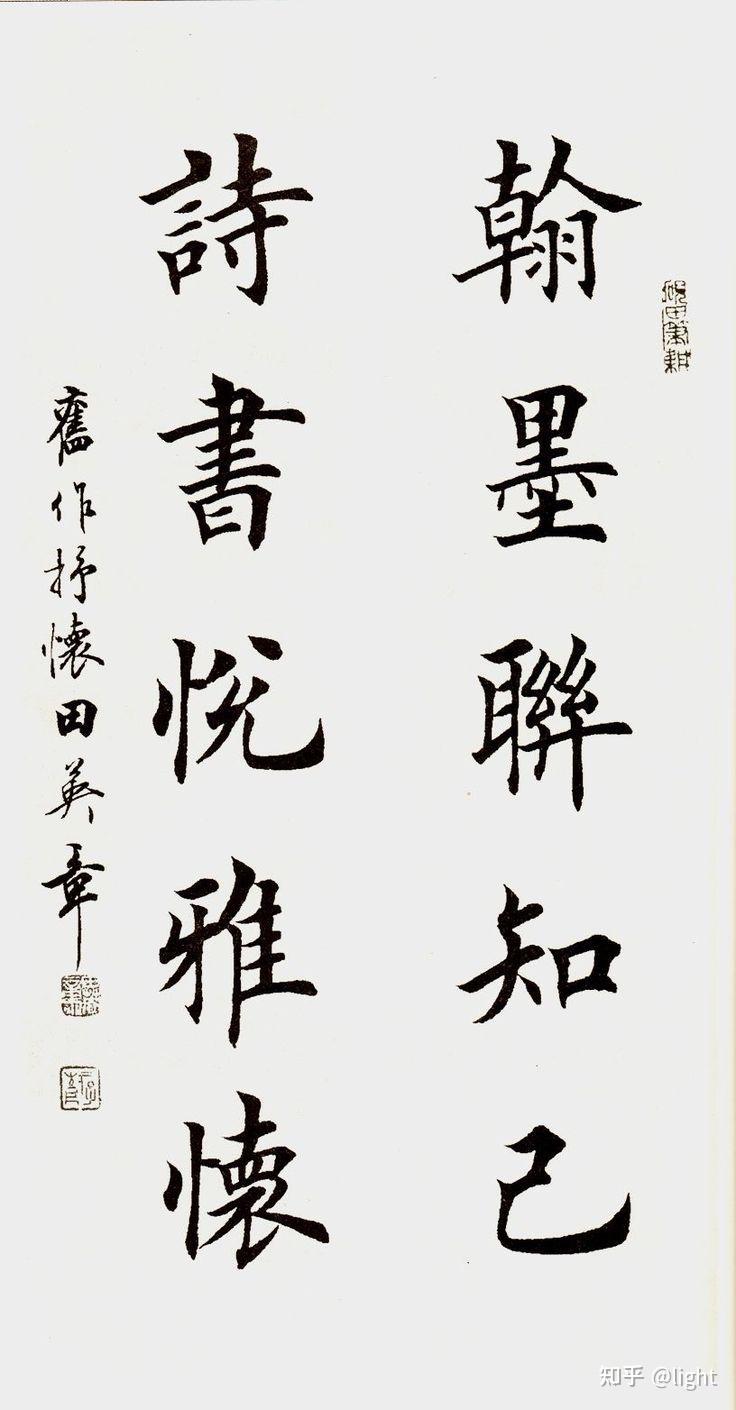 翰墨聯知己
詩書悅雅懷
舊作抒懷田英章
知乎 @light